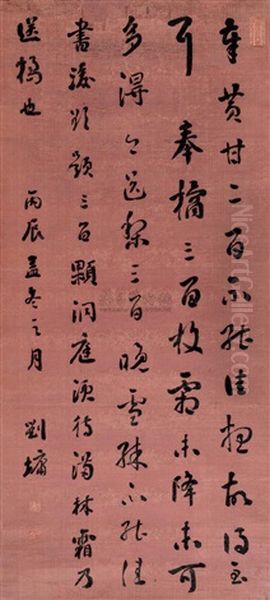 奉黄甘二百不能佳想故得至
耳奉橘三百枚霜未降未可
多得今送梨三百晚雪殊不能佳
書後欲題三百顆洞庭須待滿林霜乃
送橘也 丙辰孟冬之月 劉墉